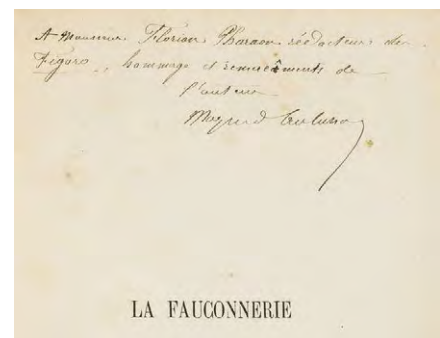 A Monsieur Florian Pharaon rédacteur du
Figaro, hommage et remerciements de
l'auteur
Magaud d'Aubusson
LA FAUCONNERIE